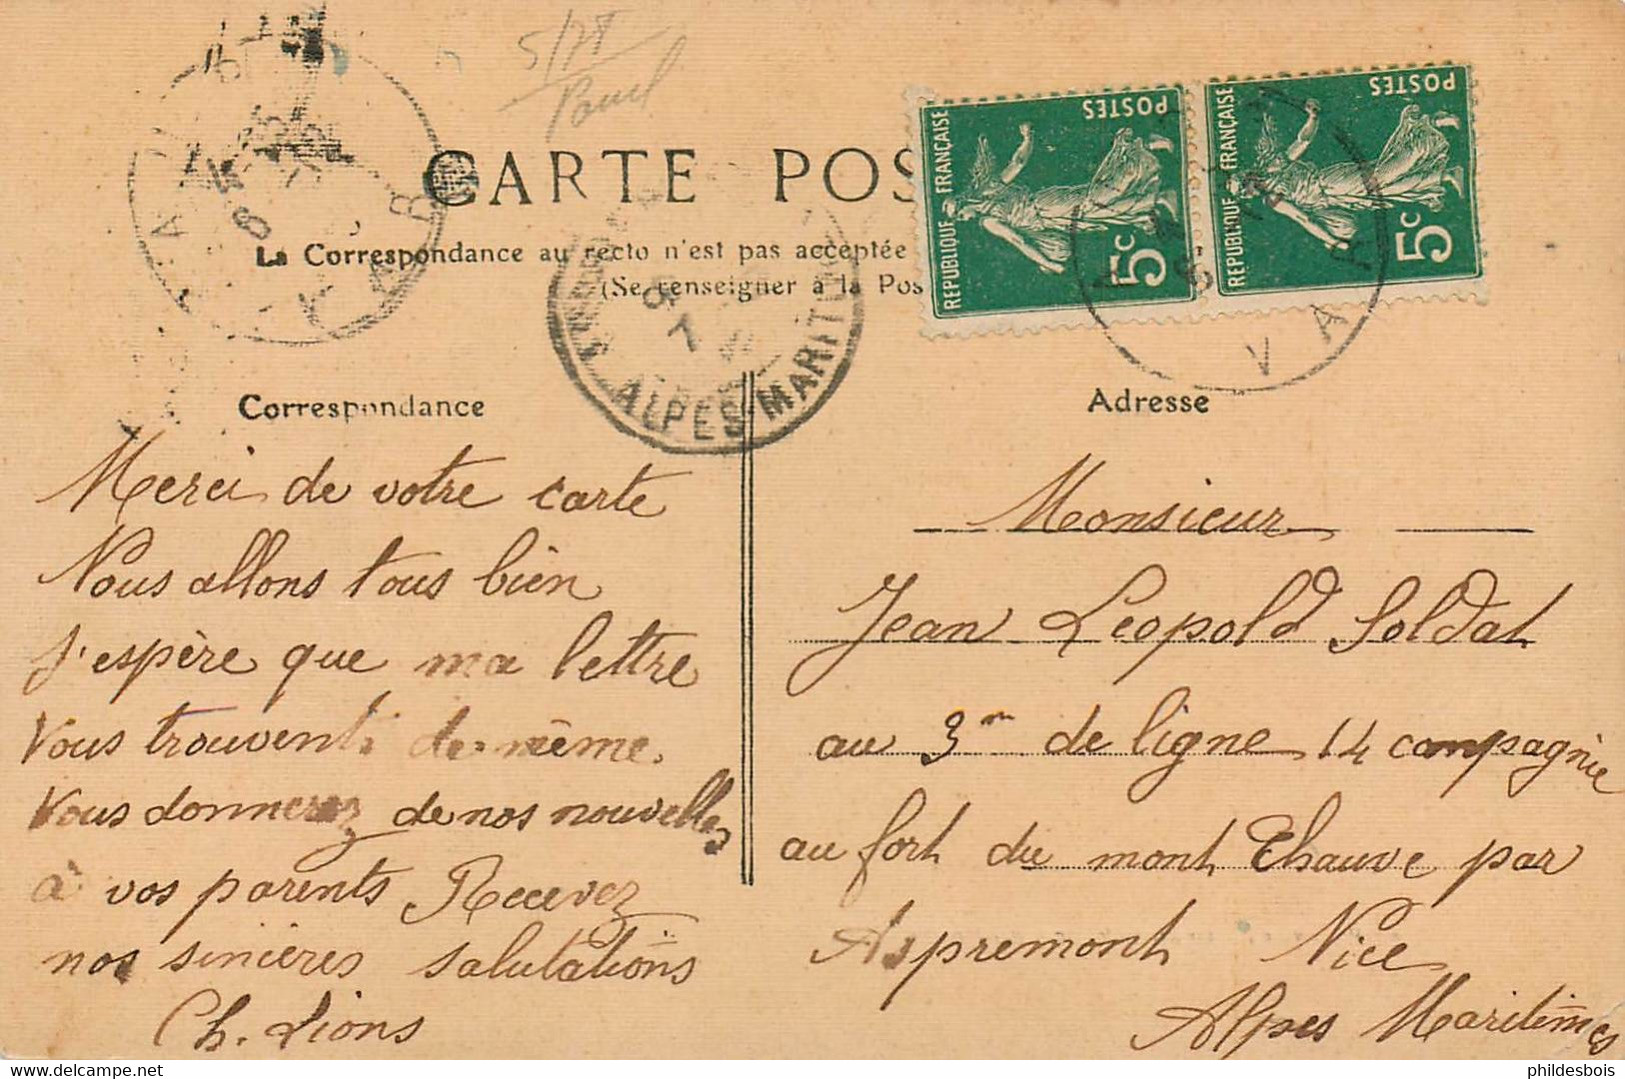 5/78
CARTE POS
La Correspondance au recto n'est pas acceptée
(Se renseigner à la Pos
POSTES
REPUBLIQUE FRANÇAISE
5c
POSTES
REPUBLIQUE FRANÇAISE
5c
VAR
VAR
ALPES-MARIT
Correspondance
Merci de votre carte
Nous allons tous bien
J'espère que ma lettre
Vous trouvent de même.
Vous donnerez de nos nouvelles
à vos parents Recevez
nos sincères salutations
Ch. Lions
Adresse
Monsieur
Jean Leopold Soldat
au 3me de ligne 14 compagnie
au fort du mont Chauve par
Aspremont Nice
Alpes Maritimes
Specialist in your collection
phildesbois